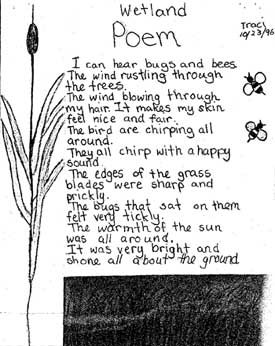 Wetland
Poem
Traci
10/23/96
I can hear bugs and bees
The wind rustling through
the trees.
The wind blowing through
my hair. It makes my skin
feel nice and fair.
The bird are chirping all
around.
They all chirp with a happy
sound.
The edges of the grass
blades were sharp and
prickly.
The bugs that sat on them
felt very tickly.
The warmth of the sun
was all around.
It was very bright and
shone all about the ground